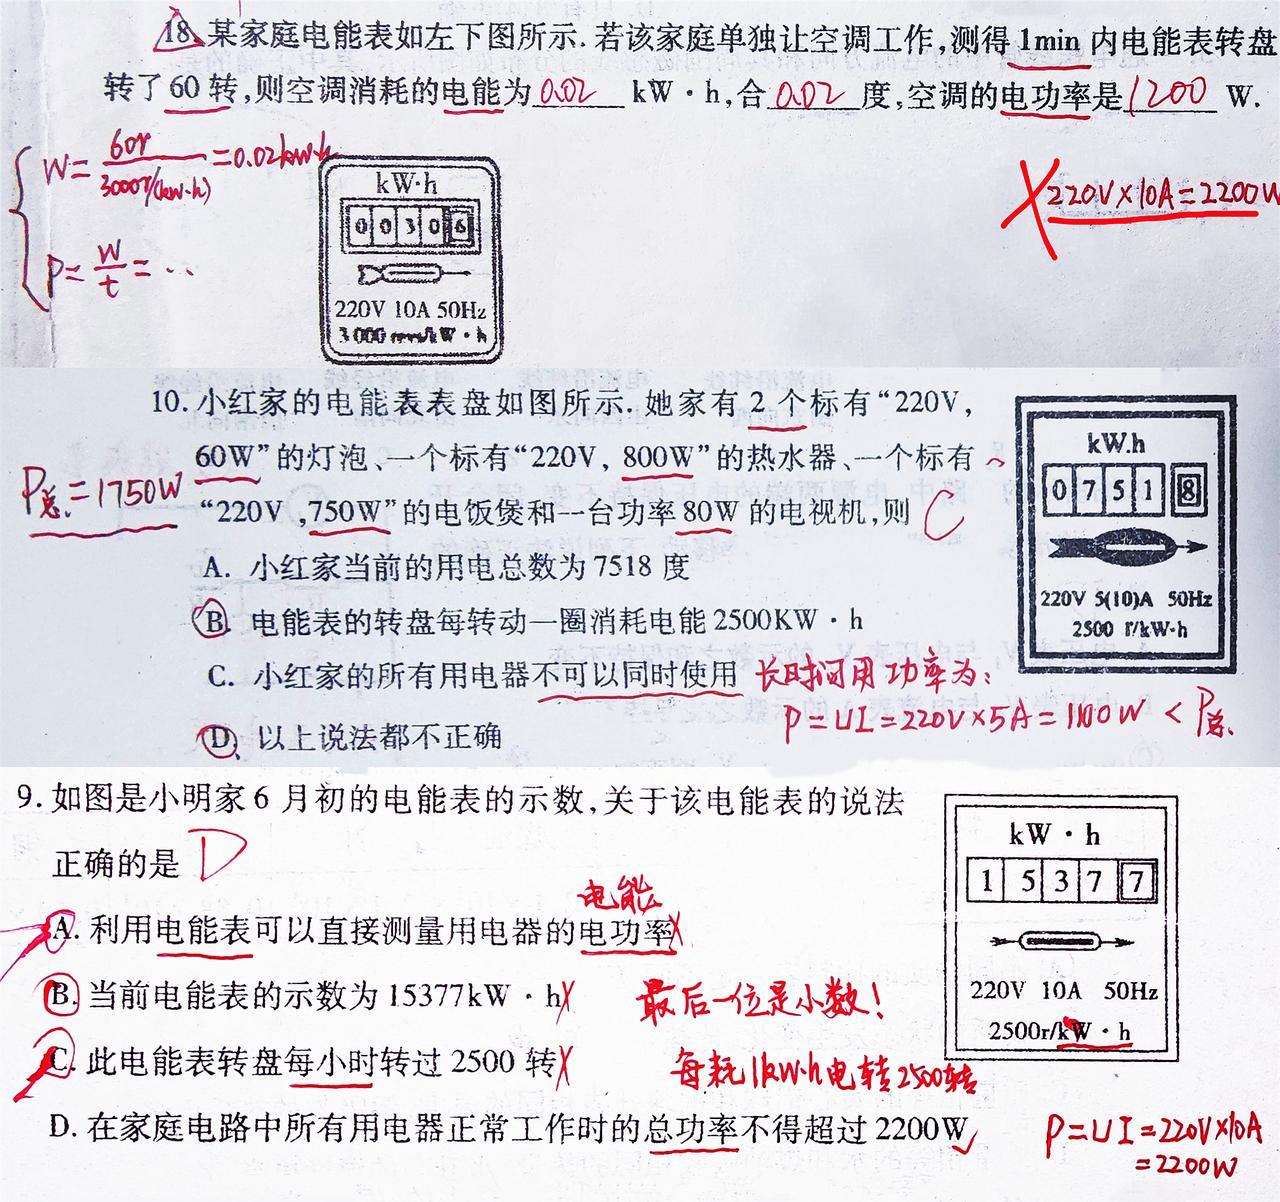 18. 某家庭电能表如左下图所示.若该家庭单独让空调工作,测得1min内电能表转盘
转了60转,则空调消耗的电能为 0.02 kW·h,合 0.02 度,空调的电功率是 1200 W.
W=60r/3000r/(kw·h)=0.02kw·h
P=W/t=··
kW·h
0 0 3 0 6
220V 10A 50Hz
3 000 revs/kW·h
220V×10A=2200W
10. 小红家的电能表表盘如图所示.她家有2个标有“220V,
60W”的灯泡、一个标有“220V, 800W”的热水器、一个标有
“220V,750W”的电饭煲和一台功率80W的电视机,则 C
P总=1750W
A. 小红家当前的用电总数为7518度
B. 电能表的转盘每转动一圈消耗电能2500KW·h
C. 小红家的所有用电器不可以同时使用 长时间用功率为:
P=UI=220V×5A=1100W<P总.
D. 以上说法都不正确
kW.h
0 7 5 1 8
220V 5(10)A 50Hz
2500 r/kW·h
9. 如图是小明家6月初的电能表的示数,关于该电能表的说法
正确的是 D
电能
A. 利用电能表可以直接测量用电器的电功率
B. 当前电能表的示数为15377kW·h 最后一位是小数!
C. 此电能表转盘每小时转过2500转 每耗1kw·h电转2500转
D. 在家庭电路中所有用电器正常工作时的总功率不得超过2200W
P=UI=220V×10A
=2200W
kW·h
1 5 3 7 7
220V 10A 50Hz
2500r/kW·h